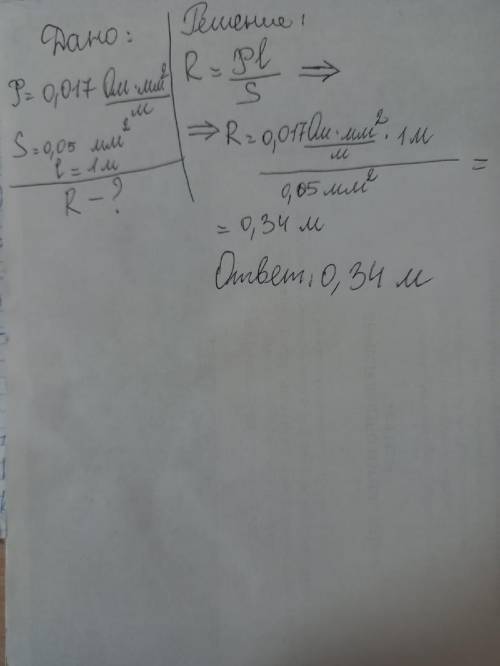 Дано:
ρ = 0,017 Ом·мм²/м
S = 0,05 мм²
l = 1 м
R - ?
Решение:
R = ρl/S ⇒
⇒ R = 0,017 Ом·мм²/м · 1 м / 0,05 мм² =
= 0,34 м
Ответ: 0,34 м